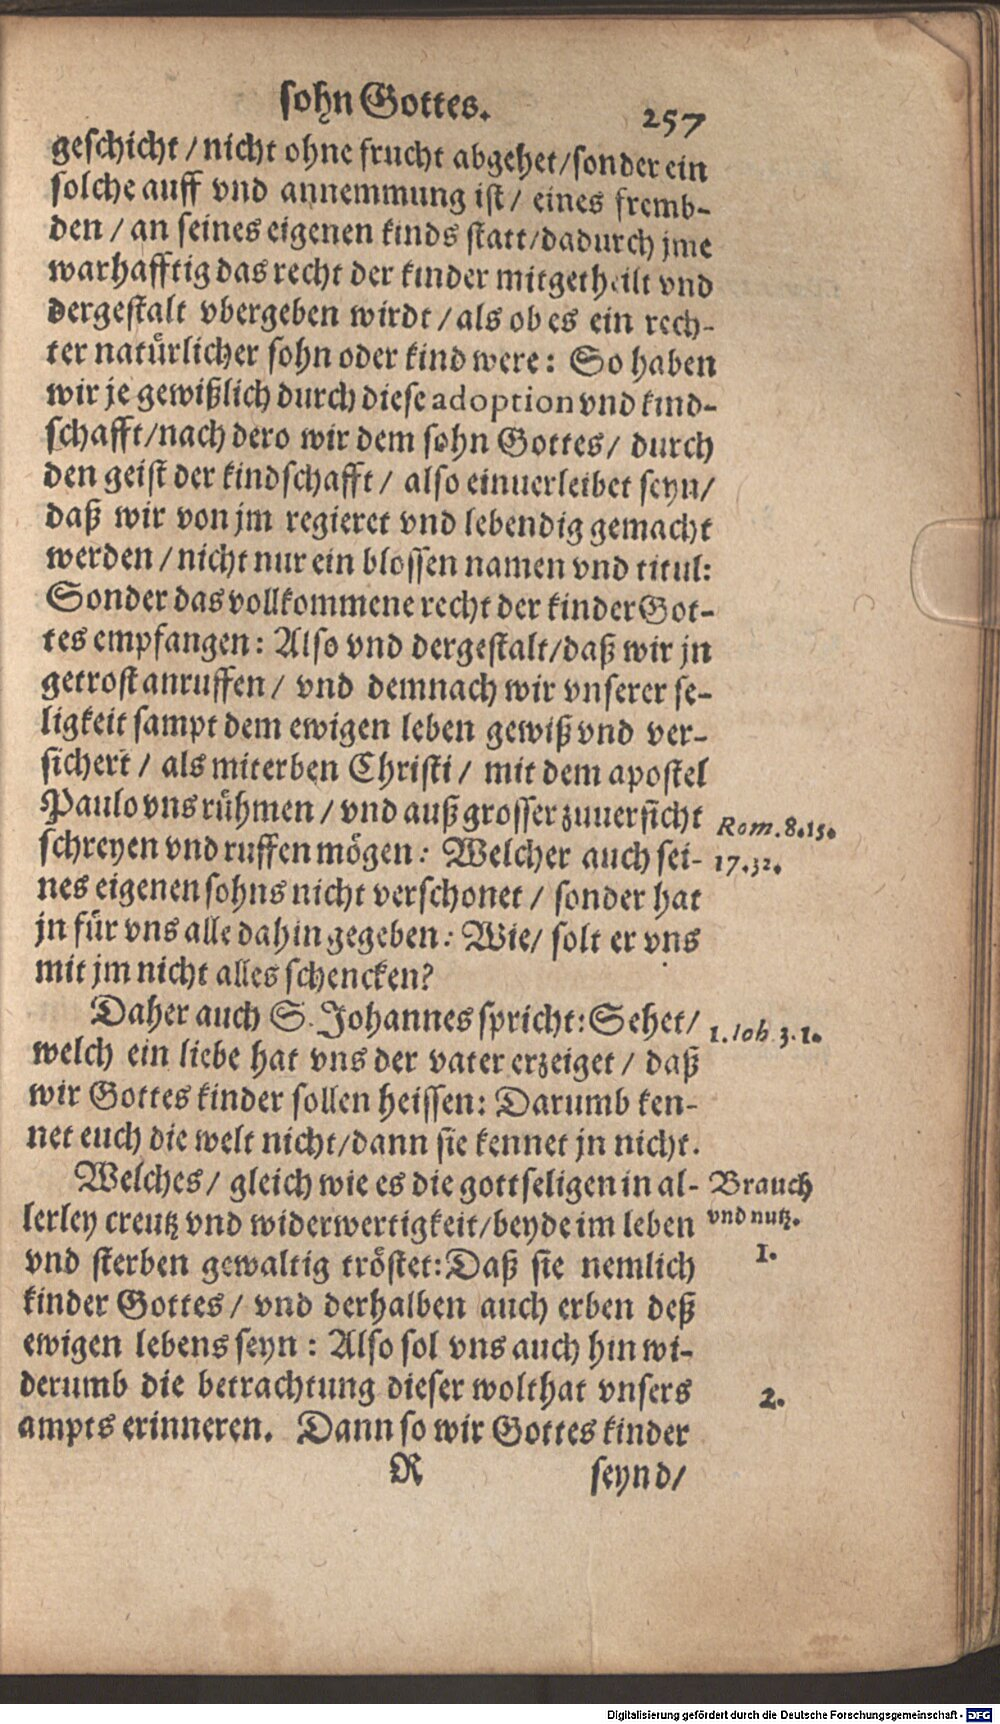 sohn Gottes. 257
geschicht / nicht ohne frucht abgehet / sonder ein
solche auff vnd annemmung ist / eines fremb-
den / an seines eigenen kinds statt / dadurch jme
warhafftig das recht der kinder mitgetheilt vnd
dergestalt vbergeben wirdt / als ob es ein rech-
ter natürlicher sohn oder kind were: So haben
wir je gewißlich durch diese adoption vnd kind-
schafft / nach dero wir dem sohn Gottes / durch
den geist der kindschafft / also einuerleibet seyn /
daß wir von jm regieret vnd lebendig gemacht
werden / nicht nur ein blossen namen vnd titul:
Sonder das vollkommene recht der kinder Got-
tes empfangen: Also vnd dergestalt / daß wir jn
getrost anruffen / vnd demnach wir vnserer se-
ligkeit sampt dem ewigen leben gewiß vnd ver-
sichert / als miterben Christi / mit dem apostel
Paulo vns rühmen / vnd auß grosser zuuersicht
Rom. 8.15.
schreyen vnd ruffen mögen: Welcher auch sei-
17.32.
nes eigenen sohns nicht verschonet / sonder hat
jn für vns alle dahin gegeben: Wie / solt er vns
mit jm nicht alles schencken?
Daher auch S. Johannes spricht: Sehet /
1. Ioh. 3.1.
welch ein liebe hat vns der vater erzeiget / daß
wir Gottes kinder sollen heissen: Darumb ken-
net euch die welt nicht / dann sie kennet jn nicht.
Welches / gleich wie es die gottseligen in al-
Brauch
lerley creutz vnd widerwertigkeit / beyde im leben
vnd nutz.
vnd sterben gewaltig tröstet: Daß sie nemlich
1.
kinder Gottes / vnd derhalben auch erben deß
ewigen lebens seyn: Also sol vns auch hinwi-
derumb die betrachtung dieser wolthat vnsers
2.
ampts erinneren. Dann so wir Gottes kinder
R seynd /
Digitalisierung gefördert durch die Deutsche Forschungsgemeinschaft - DFG